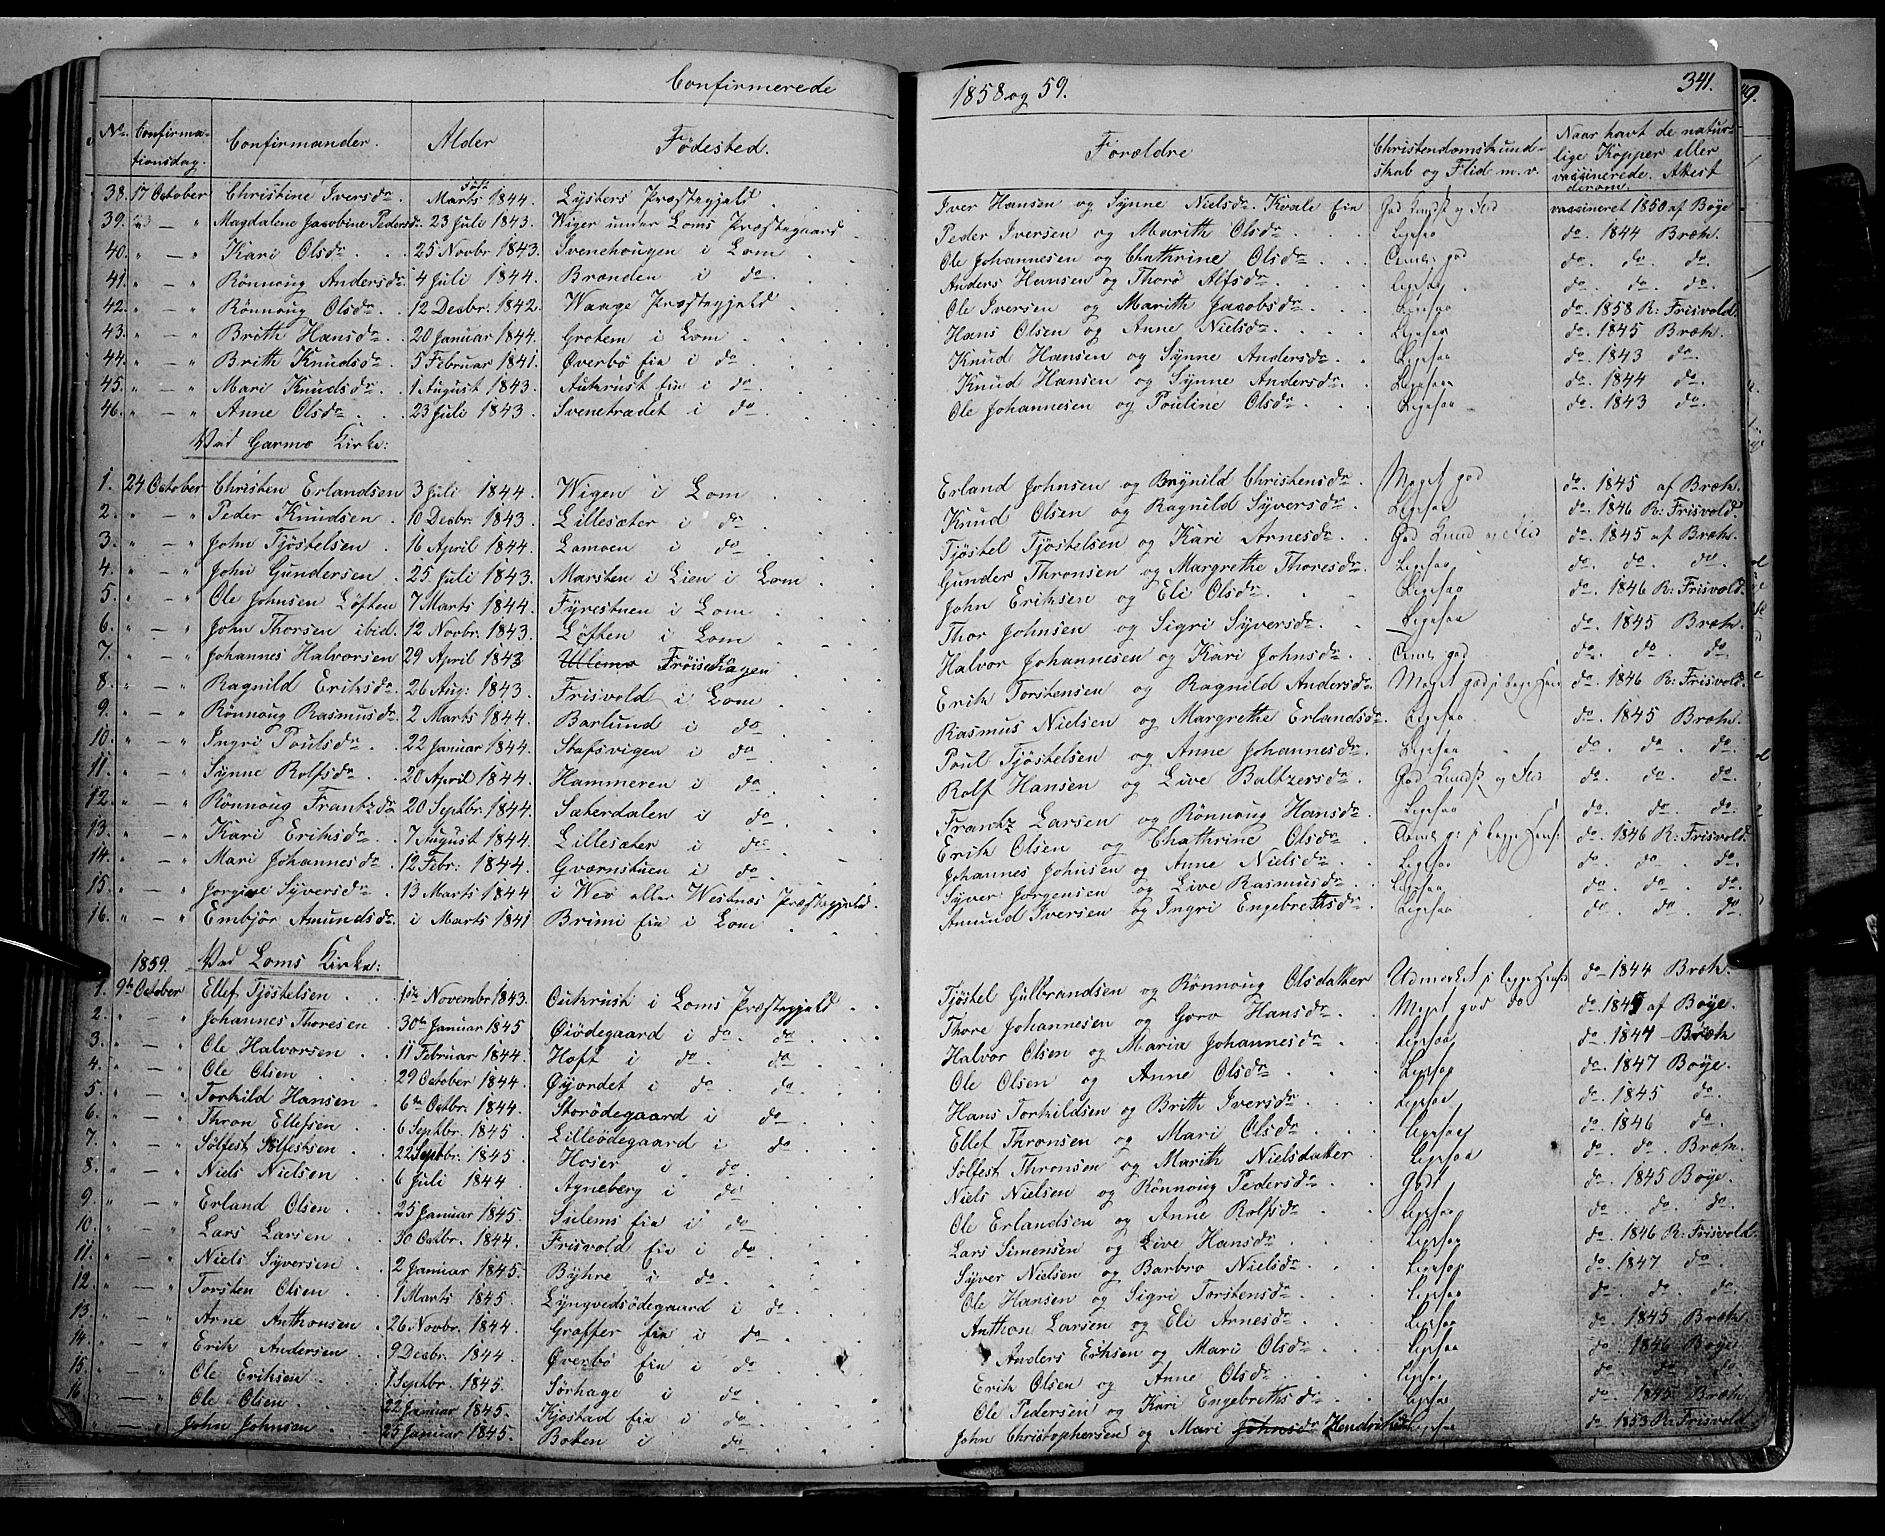 Confirmerede 1858 og 59. 341.
No. Confirmationsdag. Confirmander. Alder Fødested. Forældre Christendomskundskab og Flid m. v. Naar havt de naturlige Kopper eller vaccinerede. Attest derom.
38. 17 October Christine Iversdr. Født Marts 1844. Lysters Præstegjæld Iver Hansen og Synne Nielsdr. Kvale Eie God Kundsk og Flid vaccineret 1850 af Boye
39. " — " Magdalene Jacobine Pedersdr. 23 Juli 1843. Wiger under Loms Præstegaard Peder Iversen og Marith Olsdr. Ligesaa do. 1844 Bræk.
40. " — " Kari Olsdr. 25 Novbr. 1843. Svenehougen i Lom Ole Johannesen og Chathrine Olsdr. god do. do. do.
41. " — " Rönnoug Andersdr. 4 Juli 1844. Brenden i do. Anders Hansen og Thorø Alfsdr. Ligesaa do. do. do.
42. " — " Rönnoug Olsdr. 12 Decbr. 1842. Waage Præstegjæld Ole Iversen og Marith Jacobsdr. Ligesaa do. 1858 R: Frisvold.
43. " — " Brith Hansdr. 20 Januar 1844. Grotem i Lom Hans Olsen og Anne Nielsdr. Ligesaa do. 1845 Bræk.
44. " — " Brith Knudsdr. 5 Februar 1841. Øverbö Eie i do Knud Hansen og Synne Andersdr. Ligesaa do. 1843 do.
45. " — " Mari Knudsdr. 1 August 1843. Aukrust Eie i do Knud Hansen og Synne Andersdr. Ligesaa do. 1844 do.
46. " — " Anne Olsdr. 23 Juli 1843. Svenetrædet i do Ole Johannesen og Pouline Olsdr. Ligesaa do. 1843 do.
Ved Garmo Kirke:
1. 24 October Christen Erlandsen 3 Juli 1844. Wigen i Lom Erland Johnsen og Brynild Christensdr. Meget god do. 1845 af Bræk.
2. " — " Peder Knudsen 10 Decbr. 1843. Lillesæter i do Knud Olsen og Ragnild Syversdr. Ligesaa do. 1846 R: Frisvold.
3. " — " John Tjøstelsen 16 April 1844. Lamoen i do Tjøstel Tjøstelsen og Kari Arnesdr. God Kund og Flid do. 1845 af Bræk.
4. " — " John Gundersen 25 Juli 1843. Marsten i Lien i Lom Gunder Thronsen og Margrethe Thoresdr. Ligesaa do. do. do.
5. " — " Ole Johnsen Løften 7 Marts 1844. Fyrestuen i Lom John Eriksen og Eli Olsdr. Ligesaa do. 1846 R: Frisvold.
6. " — " John Thorsen ibid. 12 Novbr. 1843. Løften i Lom Thor Johnsen og Sigri Syversdr. Ligesaa do. 1845 Bræk.
7. " — " Johannes Halvorsen 29 April 1843 Ulemo Frøisehagen Halvor Johannesen og Kari Johnsdr. god do. do. do.
8. " — " Ragnild Eriksdr. 26 Aug: 1843. Frisvold i Lom Erik Torstensen og Ragnild Andersdr. Meget god i begge Hens do. 1846 R: Frisvold.
9. " — " Rönnoug Rasmusdr. 2 Marts 1844. Barlund i do Rasmus Nielsen og Margrethe Erlandsdr. Ligesaa do. 1845 Bræk.
10. " — " Ingri Poulsdr. 22 Januar 1844. Stafsvigen i do Poul Tjøstelsen og Anne Johannesdr. Ligesaa do. do. do.
11. " — " Synne Rolfsdr. 20 April 1844. Hammeren i do. Rolf Hansen og Live Baltzersdr. God Kundsk og Flid do. do. do.
12. " — " Rönnoug Frantzdr. 20 Septbr. 1844. Sæterdalen i do. Frantz Larsen og Rönnoug Hansdr. Ligesaa do. do. do.
13. " — " Kari Eriksdr. 7 August 1844. Lillesæter i do. Erik Olsen og Chathrine Olsdr. do. 1846 R: Frisvold.
14. " — " Mari Johannesdr. 12 Febr: 1844. Gværnstuen i do. Johannes Johnsen og Anne Nielsdr. Ligesaa do. do. do.
15. " — " Jorgine Syversdr. 13 Marts 1844 i Weö eller Wesnæs Præstegjæld. Syver Jorgensen og Live Rasmusdr. Ligesaa do. do. do.
16. " — " Embjør Amundsdr. i Marts 1841 Brimi Eie i Lom Amund Iversen og Ingri Engebrethsdr. Ligesaa do. do. do
1859. Ved Loms Kirke:
1. 9de October Ellef Tjøstelsen 1ste Novembr 1843. Oukrust i Loms Præstegjæld Tjøstel Gulbrandsen og Rönnoug Olsdatter Udmerket i begge Hens do 1844 Bræk.
2. " — " Johannes Thoresen 30te Januar 1845 Öiödegaard i do. do. Thore Johannesen og Goro Hansdr. Meget god do do. 1845 af Boye.
3. " — " Ole Halvorsen 11 Februar 1844. Hoft i do do Halvor Olsen og Maria Johannesdr. Ligesaa do. 1844 — Bræk
4. " — " Ole Olsen 29 October 1844. Øyordet i do. do. Ole Olsen og Anne Olsdr. Ligesaa do. 1847 Boye.
5. " — " Torkild Hansen 6te Octbr. 1844. Storödegaard i do. Hans Torkildsen og Brith Iversdr. Ligesaa do. 1845 do.
6. " — " Thron Ellefsen 6 Septbr. 1845. Lilleödegaard i do. Ellef Thronsen og Mari Olsdr. Ligesaa do. 1846 do.
7. " — " Sølfest Sølfestsen 22 Septbr. 1845. Hoser i do. Sølfest Thronsen og Marith Nielsdatter Ligesaa do. do. Bræk.
8. " — " Niels Nielsen 6 Juli 1844. Agneberg i do Niels Nielsen og Rönnoug Pedersdr. Godt do. 1845 Boye.
9. " — " Erland Olsen 25 Januar 1845. Sulems Eie i do Ole Erlandsen og Anne Rolfsdr. Ligesaa do. do. do
10. " — " Lars Larsen 30 Octbr. 1844. Frisvold Eie i do. Lars Simensen og Live Hansdr. Ligesaa do. 1846 R: Frisvold.
11. " — " Niels Syversen 2 Januar 1845. Byhre i do. Syver Nielsen og Barbro Nielsdr. Ligesaa do. 1847 do.
12. " — " Torsten Olsen 1 Marts 1845. Lyngvedsödegaard i do Ole Hansen og Sigri Torstensdr. Ligesaa do. do. do.
13. " — " Arne Anthonsen 26 Novbr. 1844. Graffer Eie i do. Anthon Larsen og Eli Arnesdr. Ligesaa do. 1845 Bræk.
14. " — " Erik Andersen 9 Decbr. 1844. Øverbö Eie i do Anders Eriksen og Mari Olsdr. Ligesaa do. 1846 Boye
15. " — " Ole Eriksen 1 Septbr. 1845. Sørhage i do. Erik Olsen og Anne Olsdr. Ligesaa do. do. do.
16. " — " Ole Olsen 22 Januar 1845. Kjøstad Eie i do. Ole Pedersen og Kari Engebrethsdr. Ligesaa do. 1845 Bræk.
" — " John Johnsen 25 Januar 1845. Boken i do. John Christophersen og Mari Johnsdr Hendriksdr Ligesaa do. 1853 R: Frisvold